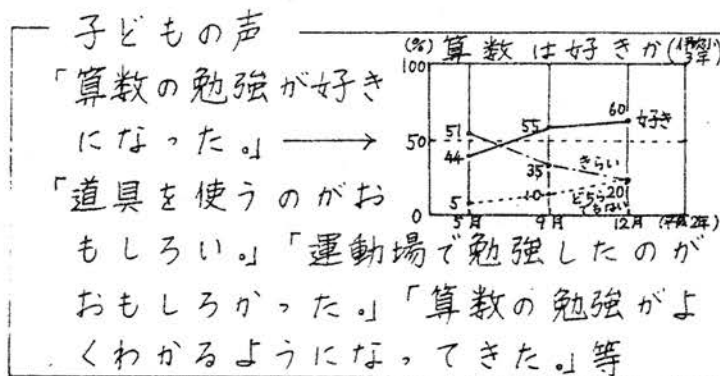 子どもの声
「算数の勉強が好き
になった。」
「道具を使うのがお
もしろい。」「運動場で勉強したのが
おもしろかった。」「算数の勉強がよ
くわかるようになってきた。」等
(%) 算数は好きか
3年
100
50
0
51
44
5
55
35
10
60
20
好き
きらい
どちら
でもない
5月 9月 12月 (平成2年)